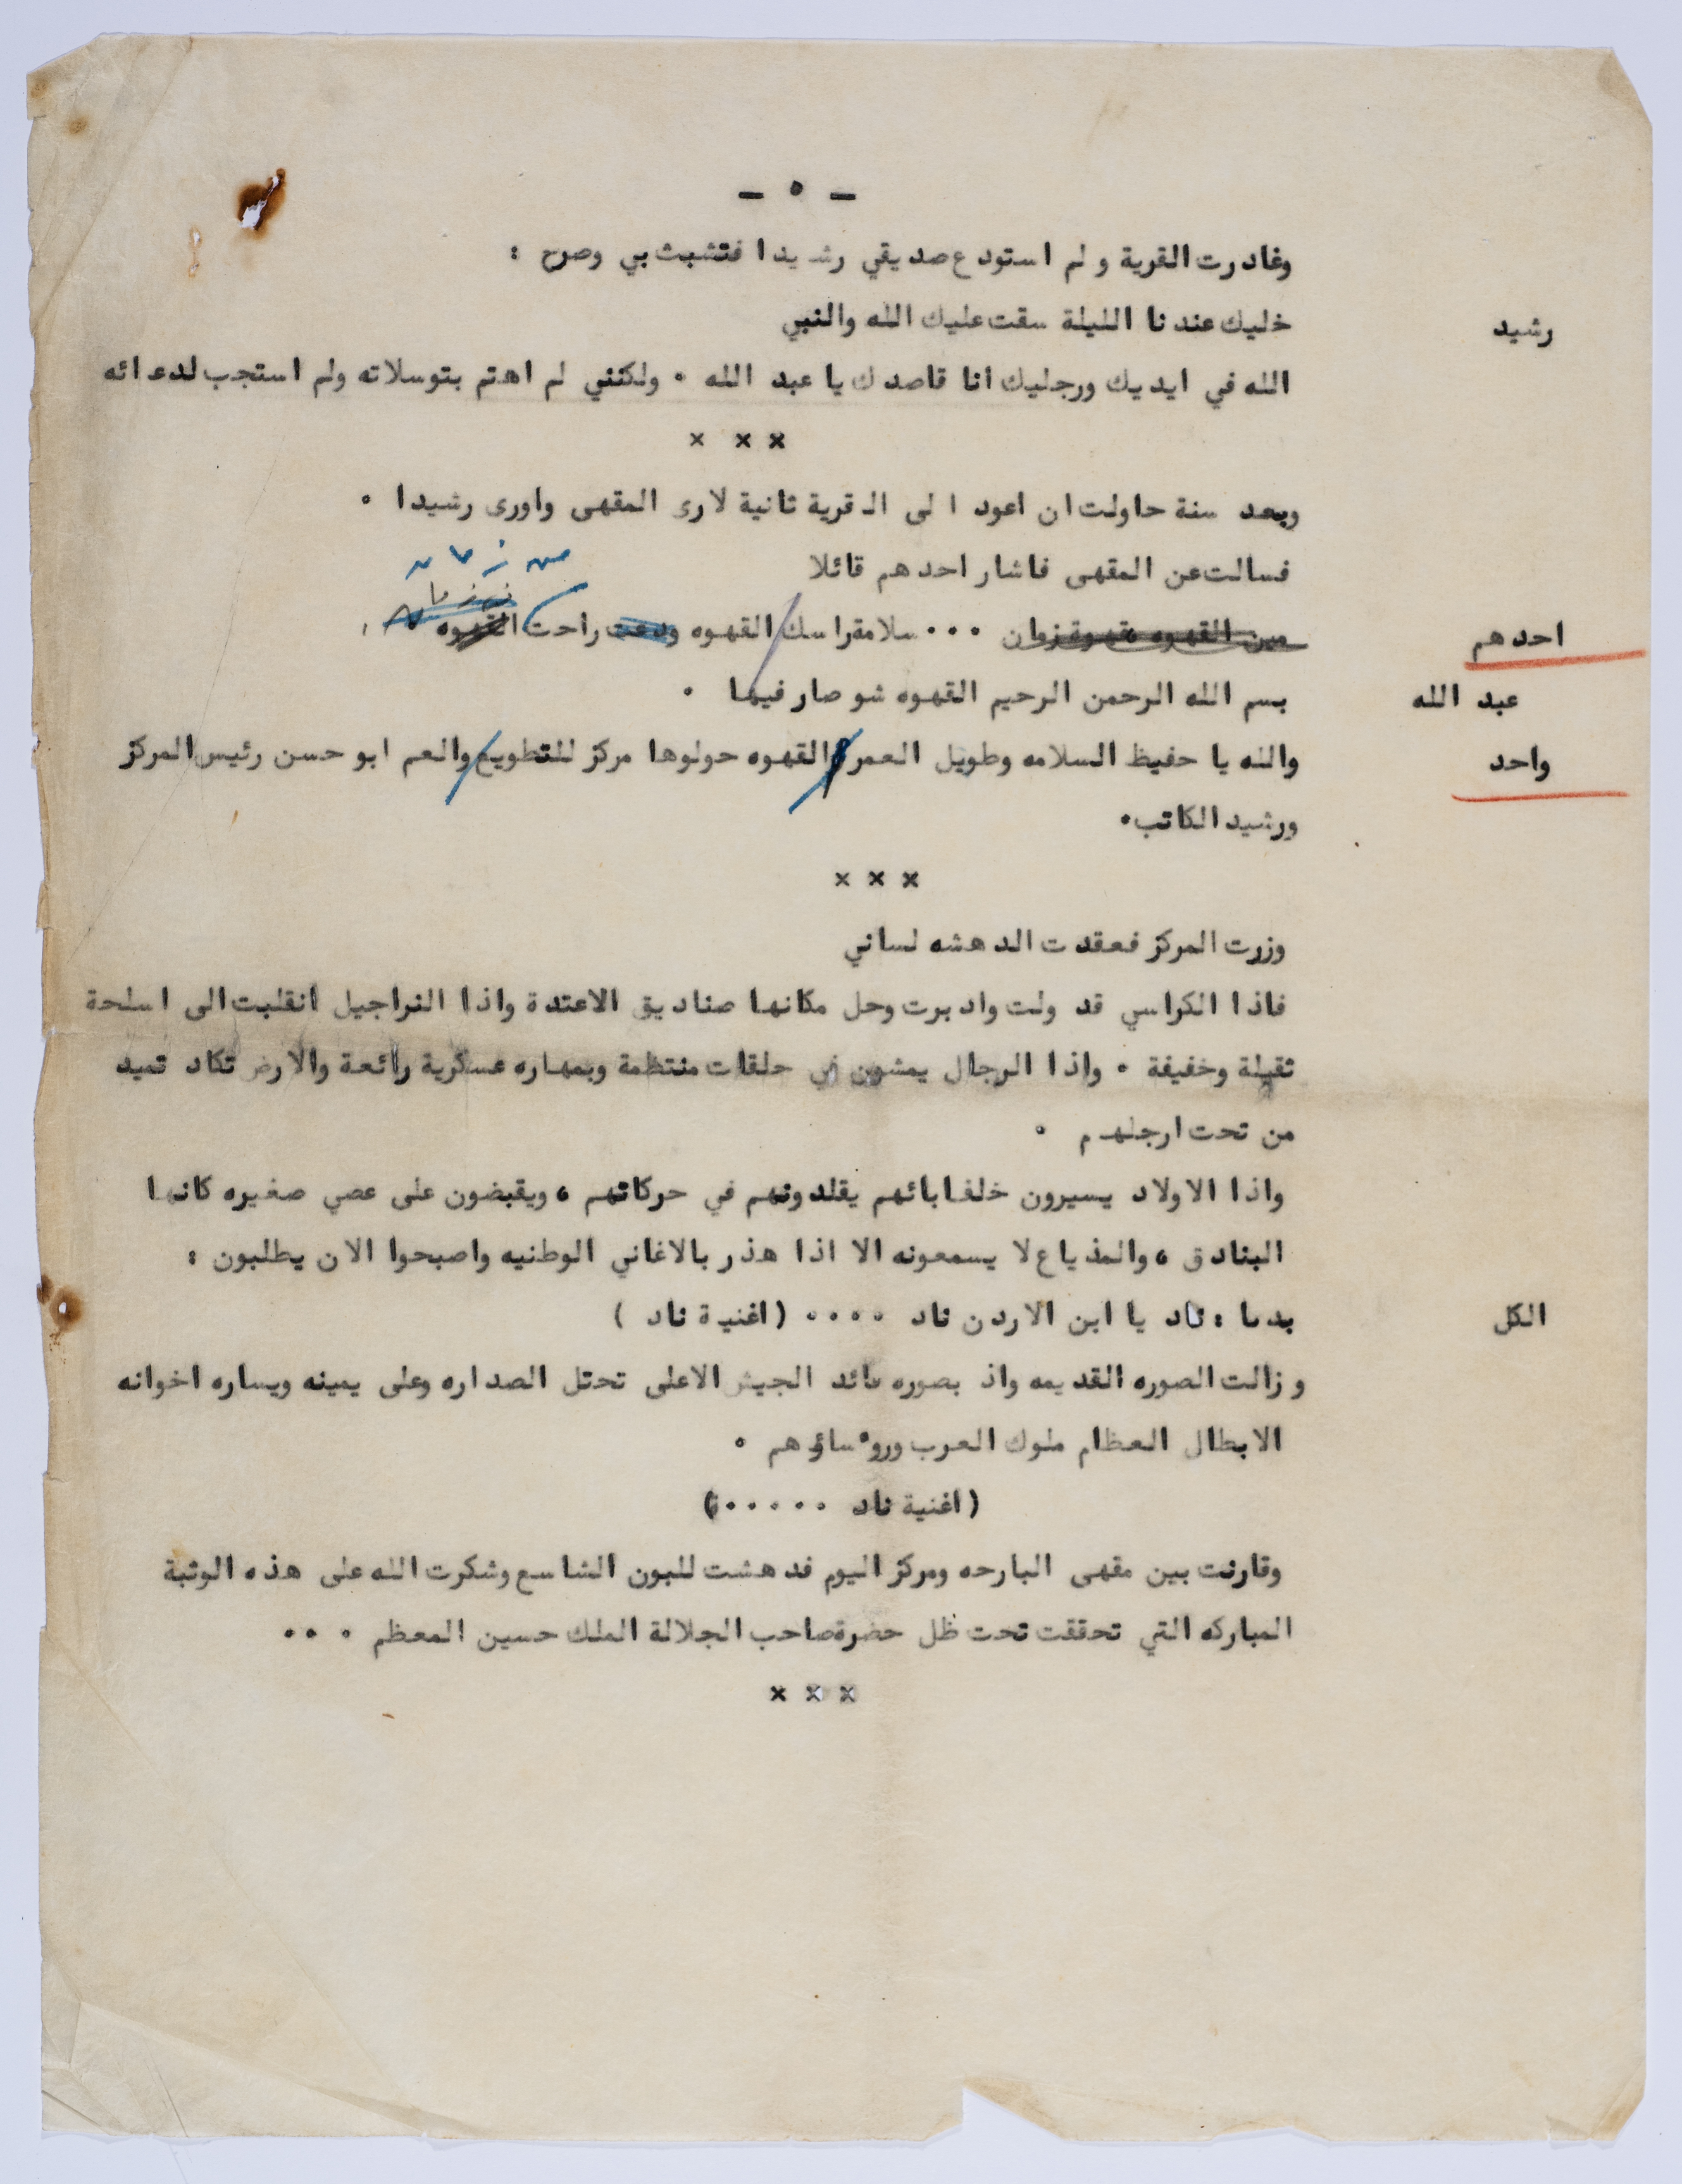 - ٥ -
وغادرت القرية ولم استودع صديقي رشيدا فتشبث بي وصرح :
رشيد خليك عندنا الليلة سقت عليك الله والنبي
الله في ايديك ورجليك انا قاصدك يا عبد الله ٠ ولكنني لم اهتم بتوسلاته ولم استجب لدعائه
× × ×
وبعد سنة حاولت ان اعود الى القرية ثانية لارى المقهى واورى رشيدا ٠
فسالت عن المقهى فاشار احدهم قائلا
من زمان
احدهم مين القهوه قهوة زمان ٠٠٠ سلامة راسك القهوه ودعت راحت القهوه
عبد الله بسم الله الرحمن الرحيم القهوه شو صار فيها ٠
واحد والله يا حفيظ السلامه وطويل العمر القهوه حولوها مركز للتطويع والعم ابو حسن رئيس المركز
ورشيد الكاتب٠
× × ×
وزرت المركز فعقدت الدهشه لساني
فاذا الكراسي قد ولت وادبرت وحل مكانها صناديق الاعتدة واذا النراجيل انقلبت الى اسلحة
ثقيلة وخفيفة ٠ واذا الرجال يمشون في حلقات منتظمة وبمهاره عسكرية رائعة والارض تكاد تميد
من تحت ارجلهم ٠
واذا الاولاد يسيرون خلف ابائهم يقلدونهم في حركاتهم ، ويقبضون على عصي صغيره كانها
البنادق ، والمذياع لا يسمعونه الا اذا هذر بالاغاني الوطنيه واصبحوا الان يطلبون :
الكل بدنا : ناد يا ابن الاردن ناد ٠٠٠٠ ( اغنية ناد )
وزالت الصوره القديمه واذ بصوره قائد الجيش الاعلى تحتل الصداره وعلى يمينه ويساره اخوانه
الابطال العظام ملوك العرب وروءساؤهم ٠
( اغنية ناد ٠٠٠٠٠ )
وقارنت بين مقهى البارحه ومركز اليوم فدهشت للبون الشاسع وشكرت الله على هذه الوثبة
المباركه التي تحققت تحت ظل حضرة صاحب الجلالة الملك حسين المعظم ٠٠٠
× × ×